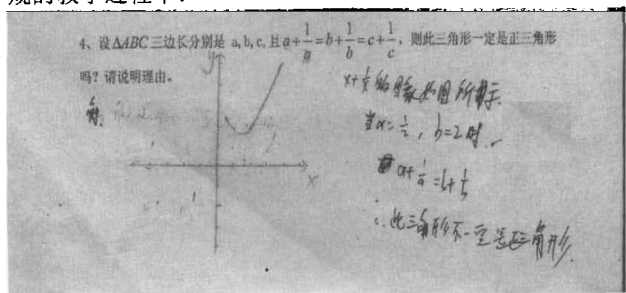 规的教学过程中.
4、设ΔABC三边长分别是 a,b,c,且a+1/a=b+1/b=c+1/c，则此三角形一定是正三角形
吗？请说明理由。
y
x
x+1/x的图象如图所示.
当a=1/2，b=2时.
a+1/a=b+1/b
∴此三角形不一定是正三角形.